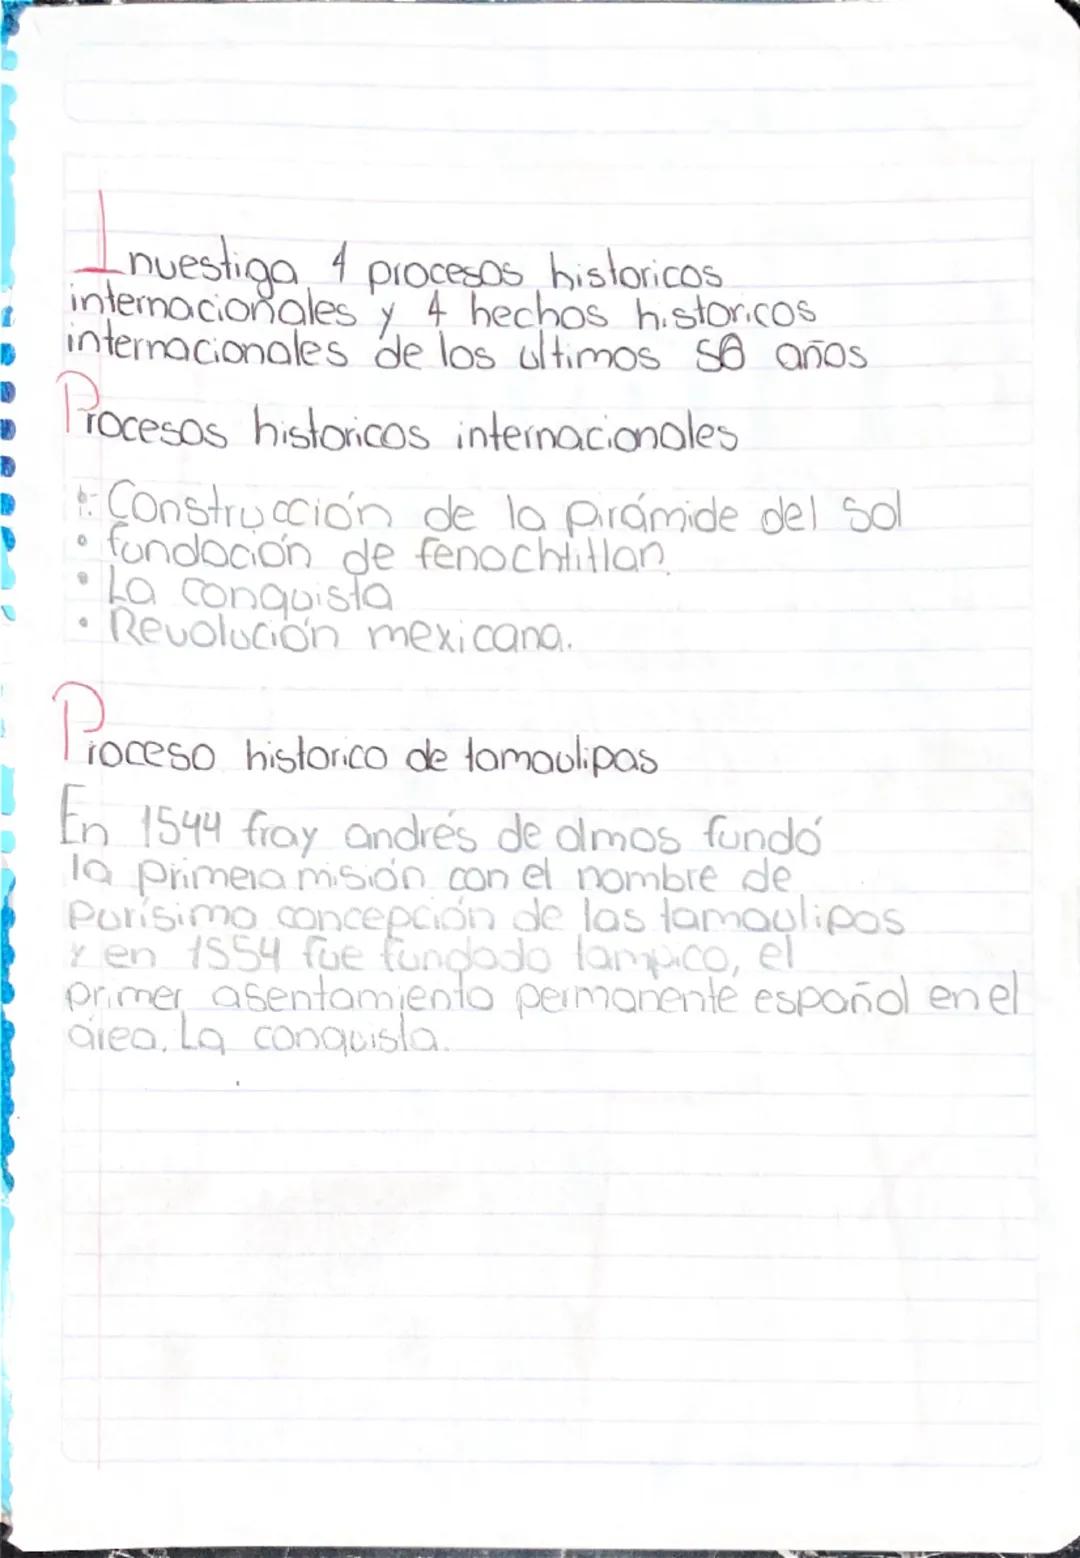 Investiga 4 procesos historicos
internacionales y 4 hechos historicos
internacionales de los ultimos 50 años
Procesos historicos internacionales
• Construcción de la pirámide del sol
• fundación de fenochtitlan
• La conquista
• Revolución mexicana.
Proceso historico de tamaulipas
En 1544 fray andrés de olmos fundó
la primera misión con el nombre de
Purísima concepción de las tamaulipas
y en 1554 fue fundado tampico, el
primer asentamiento permanente español en el
área. La conquista.